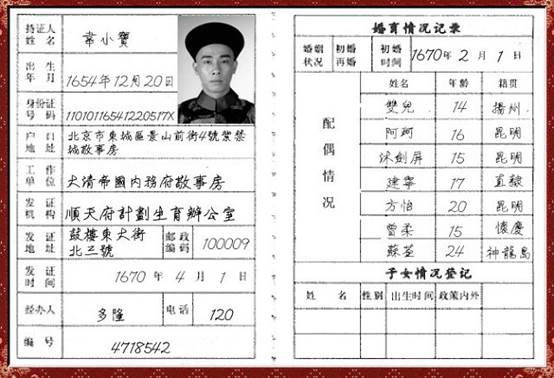 持证人姓名 常小寶
出生年月 1654年12月20日
身份证号码 11010116541220517X
户口地址 北京市東城區景山前街4號紫禁
城敬事房
工作单位 大清帝國内務府敬事房
发证机构 順天府計劃生育辦公室
发证地址 鼓樓東大街
北三號 邮政编码 100009
发证时间 1670年4月1日
经办人 多隆 电话 120
编号 4718542
婚育情况记录
婚姻状况 初婚再婚 初婚时间 1670年2月1日
配偶情况
姓名 年龄 籍贯
雙兒 14 揚州
阿珂 16 昆明
沐劍屏 15 昆明
建寧 17 直隸
方怡 20 昆明
曾柔 15 懷慶
蘇荃 24 神龍島
子女情况登记
姓名 性别 出生时间 政策内外